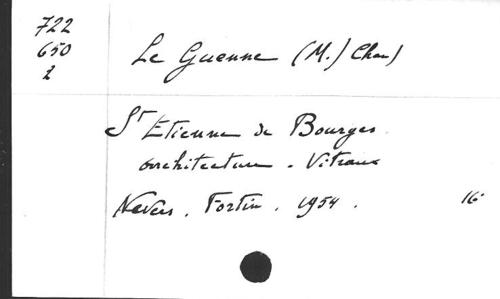 722
650
1
Le Guenne (M.) Chan)
St Etienne de Bourges
architecture. Vitraux
Nevers. Fortin. 1954. 16°